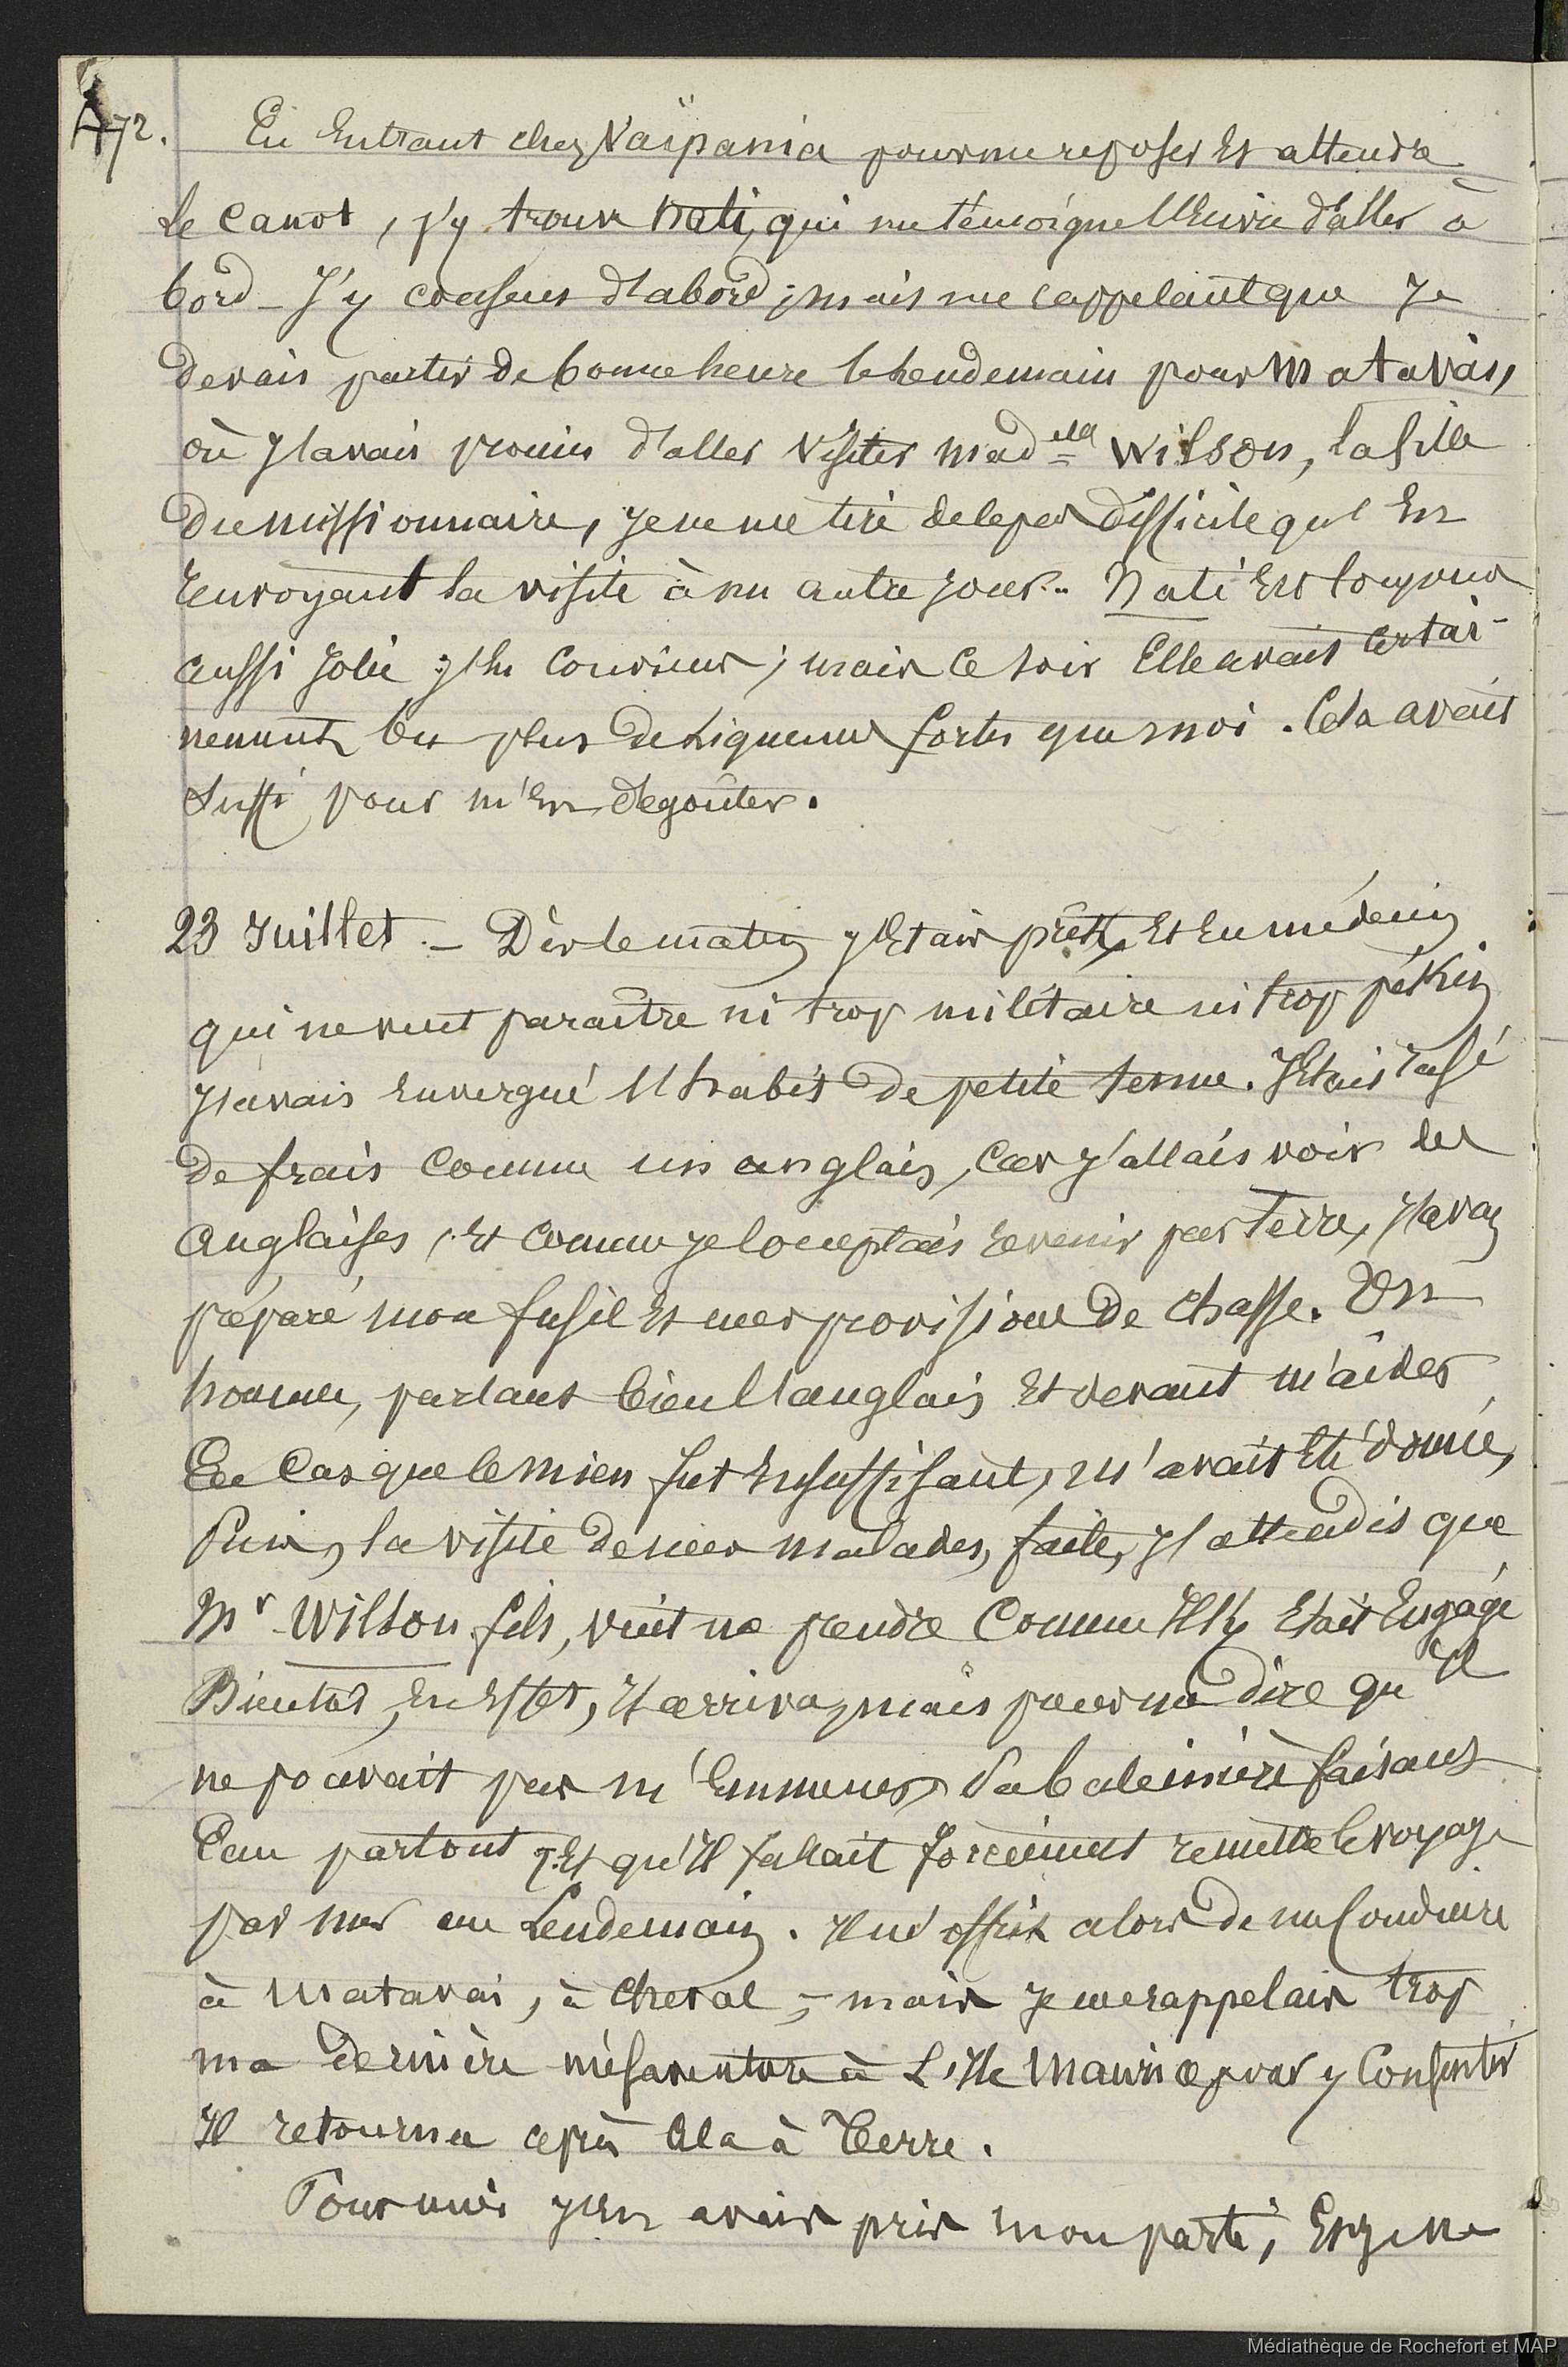 472.
En Entrant chez Vaïpania pour me reposer Et attendre
le Canot, j'y trouve Nati, qui me témoigne l'Envie d'aller à
bord - J'y consens d'abord; mais me rappelant que Je
devais partir de bonne heure le lendemain pour Matavai,
où j'avais promis d'aller visiter Mad^elle Wilson, la fille
du Missionnaire, je ne me tire de le pas difficile qu'En
renvoyant la visite à un autre jour.. Nati Est toujours
aussi jolie j'En conviens; mais ce soir Elle avait certai-
nement bu plus de liqueurs fortes que moi. Cela avait
suffi pour m'En dégoûter.
23 Juillet. - Dès le matin j'Etais prêt, Et En médecin
qui ne veut paraître ni trop militaire ni trop pékin
j'avais Envergué l'habit de petite tenue. J'Etais rasé
de frais comme un anglais, car j'allais voir des
Anglaises, Et comme je comptais revenir par terre, j'avais
préparé mon fusil Et mes provisions de chasse. Un
homme, parlant bien l'anglais Et devant m'aider
En Cas que le mien fut Insuffisant, m'avait Eté donné,
Puis, la visite de mes malades, faite, j'attendis que
Mr Wilson fils, vint me prendre Comme Il s'y Etait Engagé
Bientôt, En Effet, Il arriva, mais pour me dire qu'Il
ne pouvait pas m'Emmener, sa baleinière faisant
Eau partout, Et qu'Il fallait forcément remettre le voyage
par mer au Lendemain. Il m'offrit alors de me Conduire
à Matavai, à Cheval; - mais je me rappelais trop
ma dernière mésaventure à L'Ile Maurice pour y Consentir
Il retourna après Cela à Terre.
Pour moi j'En avais pris mon parti, Et je me
Médiathèque de Rochefort et MAP